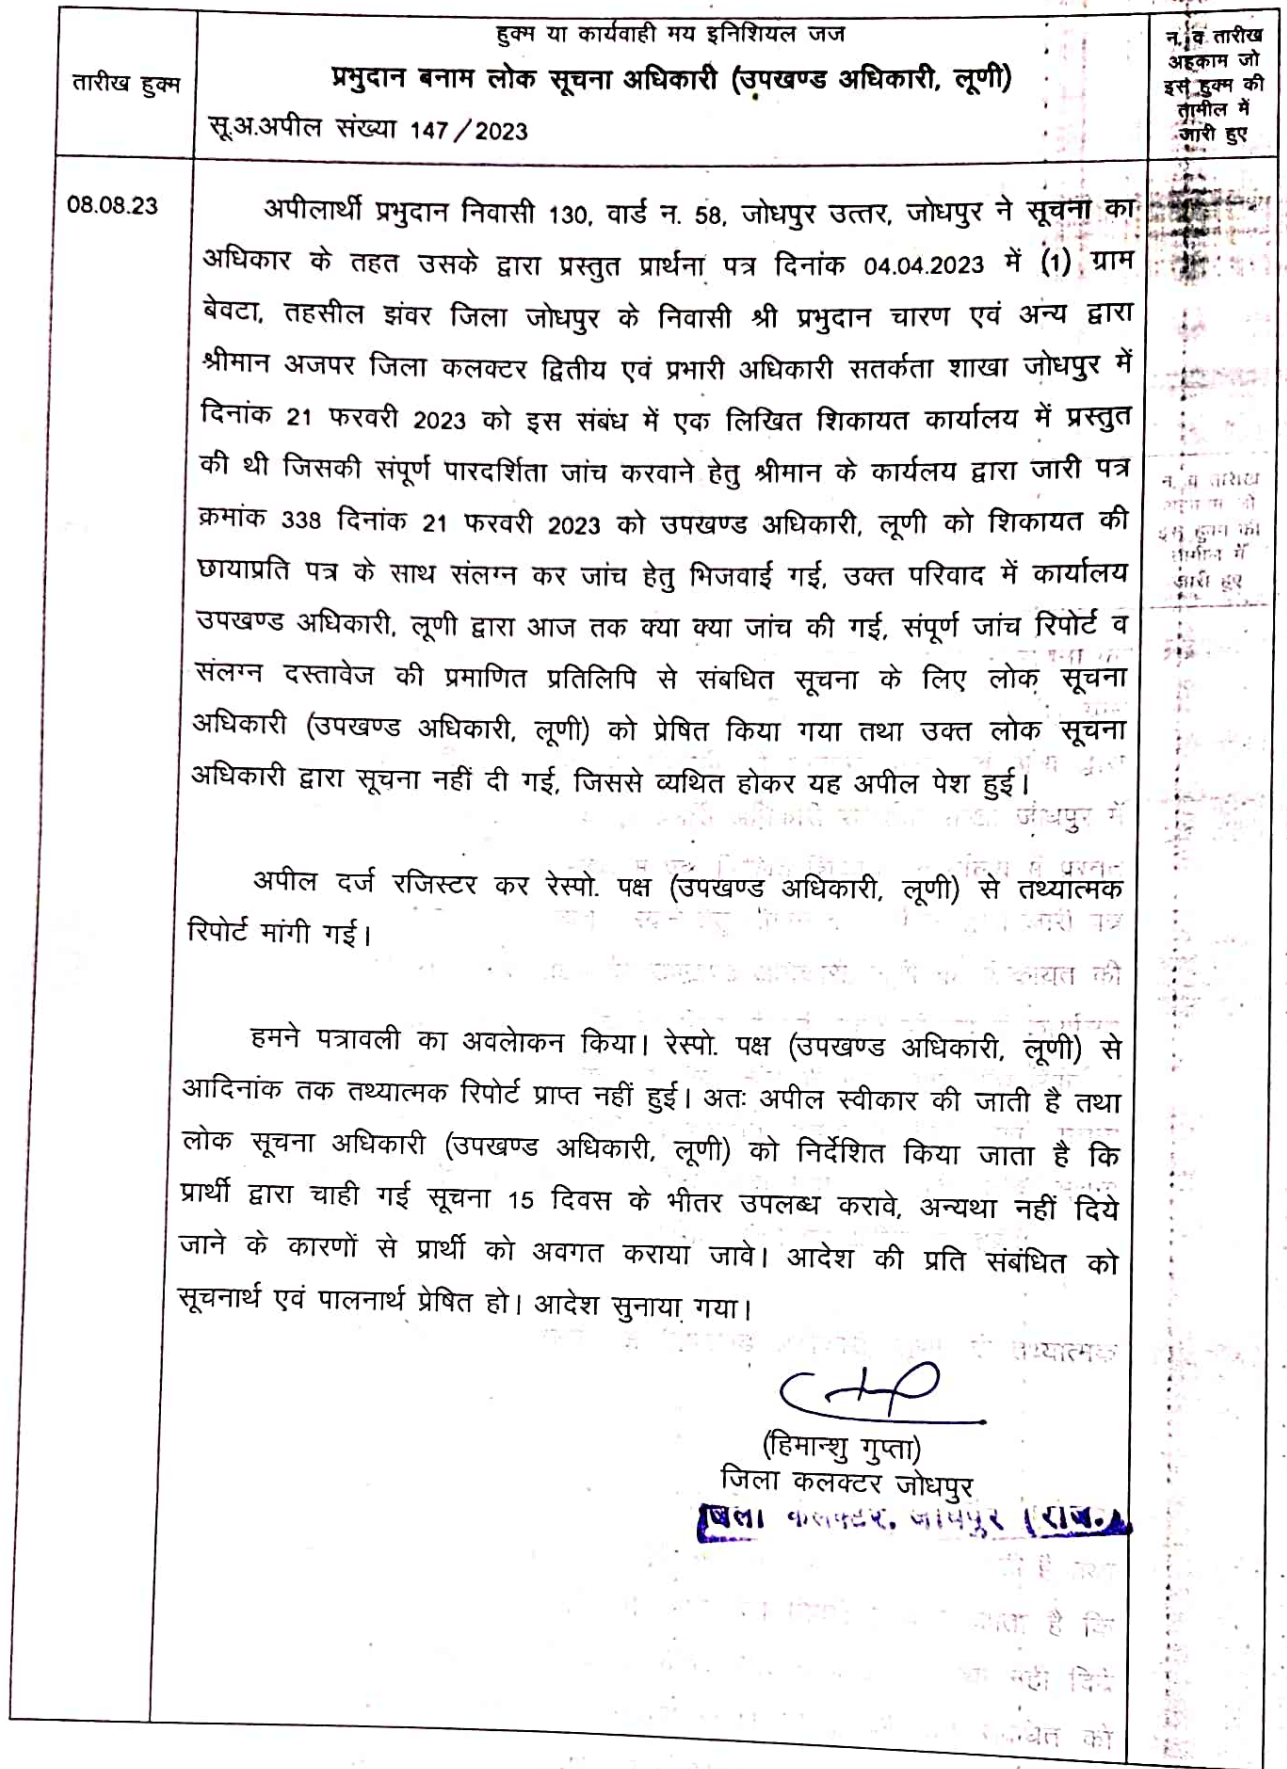 हुक्म या कार्यवाही मय इनिशियल जज
तारीख हुक्म
प्रभुदान बनाम लोक सूचना अधिकारी (उपखण्ड अधिकारी, लूणी)
सू.अ.अपील संख्या 147/2023
न. व तारीख
अहकाम जो
इस हुक्म की
तामील में
जारी हुए
08.08.23
अपीलार्थी प्रभुदान निवासी 130, वार्ड न. 58, जोधपुर उत्तर, जोधपुर ने सूचना का
अधिकार के तहत उसके द्वारा प्रस्तुत प्रार्थना पत्र दिनांक 04.04.2023 में (1) ग्राम
बेवटा, तहसील झंवर जिला जोधपुर के निवासी श्री प्रभुदान चारण एवं अन्य द्वारा
श्रीमान अजपर जिला कलक्टर द्वितीय एवं प्रभारी अधिकारी सतर्कता शाखा जोधपुर में
दिनांक 21 फरवरी 2023 को इस संबंध में एक लिखित शिकायत कार्यालय में प्रस्तुत
की थी जिसकी संपूर्ण पारदर्शिता जांच करवाने हेतु श्रीमान के कार्यलय द्वारा जारी पत्र
क्रमांक 338 दिनांक 21 फरवरी 2023 को उपखण्ड अधिकारी, लूणी को शिकायत की
छायाप्रति पत्र के साथ संलग्न कर जांच हेतु भिजवाई गई, उक्त परिवाद में कार्यालय
उपखण्ड अधिकारी, लूणी द्वारा आज तक क्या क्या जांच की गई, संपूर्ण जांच रिपोर्ट व
संलग्न दस्तावेज की प्रमाणित प्रतिलिपि से संबधित सूचना के लिए लोक सूचना
अधिकारी (उपखण्ड अधिकारी, लूणी) को प्रेषित किया गया तथा उक्त लोक सूचना
अधिकारी द्वारा सूचना नहीं दी गई, जिससे व्यथित होकर यह अपील पेश हुई।
अपील दर्ज रजिस्टर कर रेस्पो. पक्ष (उपखण्ड अधिकारी, लूणी) से तथ्यात्मक
रिपोर्ट मांगी गई।
हमने पत्रावली का अवलोकन किया। रेस्पो. पक्ष (उपखण्ड अधिकारी, लूणी) से
आदिनांक तक तथ्यात्मक रिपोर्ट प्राप्त नहीं हुई। अतः अपील स्वीकार की जाती है तथा
लोक सूचना अधिकारी (उपखण्ड अधिकारी, लूणी) को निर्देशित किया जाता है कि
प्रार्थी द्वारा चाही गई सूचना 15 दिवस के भीतर उपलब्ध करावे, अन्यथा नहीं दिये
जाने के कारणों से प्रार्थी को अवगत कराया जावे। आदेश की प्रति संबंधित को
सूचनार्थ एवं पालनार्थ प्रेषित हो। आदेश सुनाया गया।
(हिमान्शु गुप्ता)
जिला कलक्टर जोधपुर
जिला कलक्टर, जोधपुर (राज.)